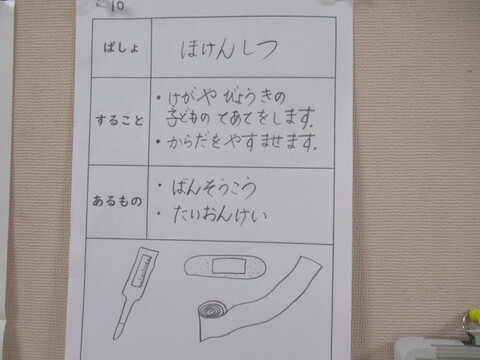 10
ばしょ
ほけんしつ
すること
・けがや びょうきの
子どもの てあてをします。
・からだを やすませます。
あるもの
・ばんそうこう
・たいおんけい